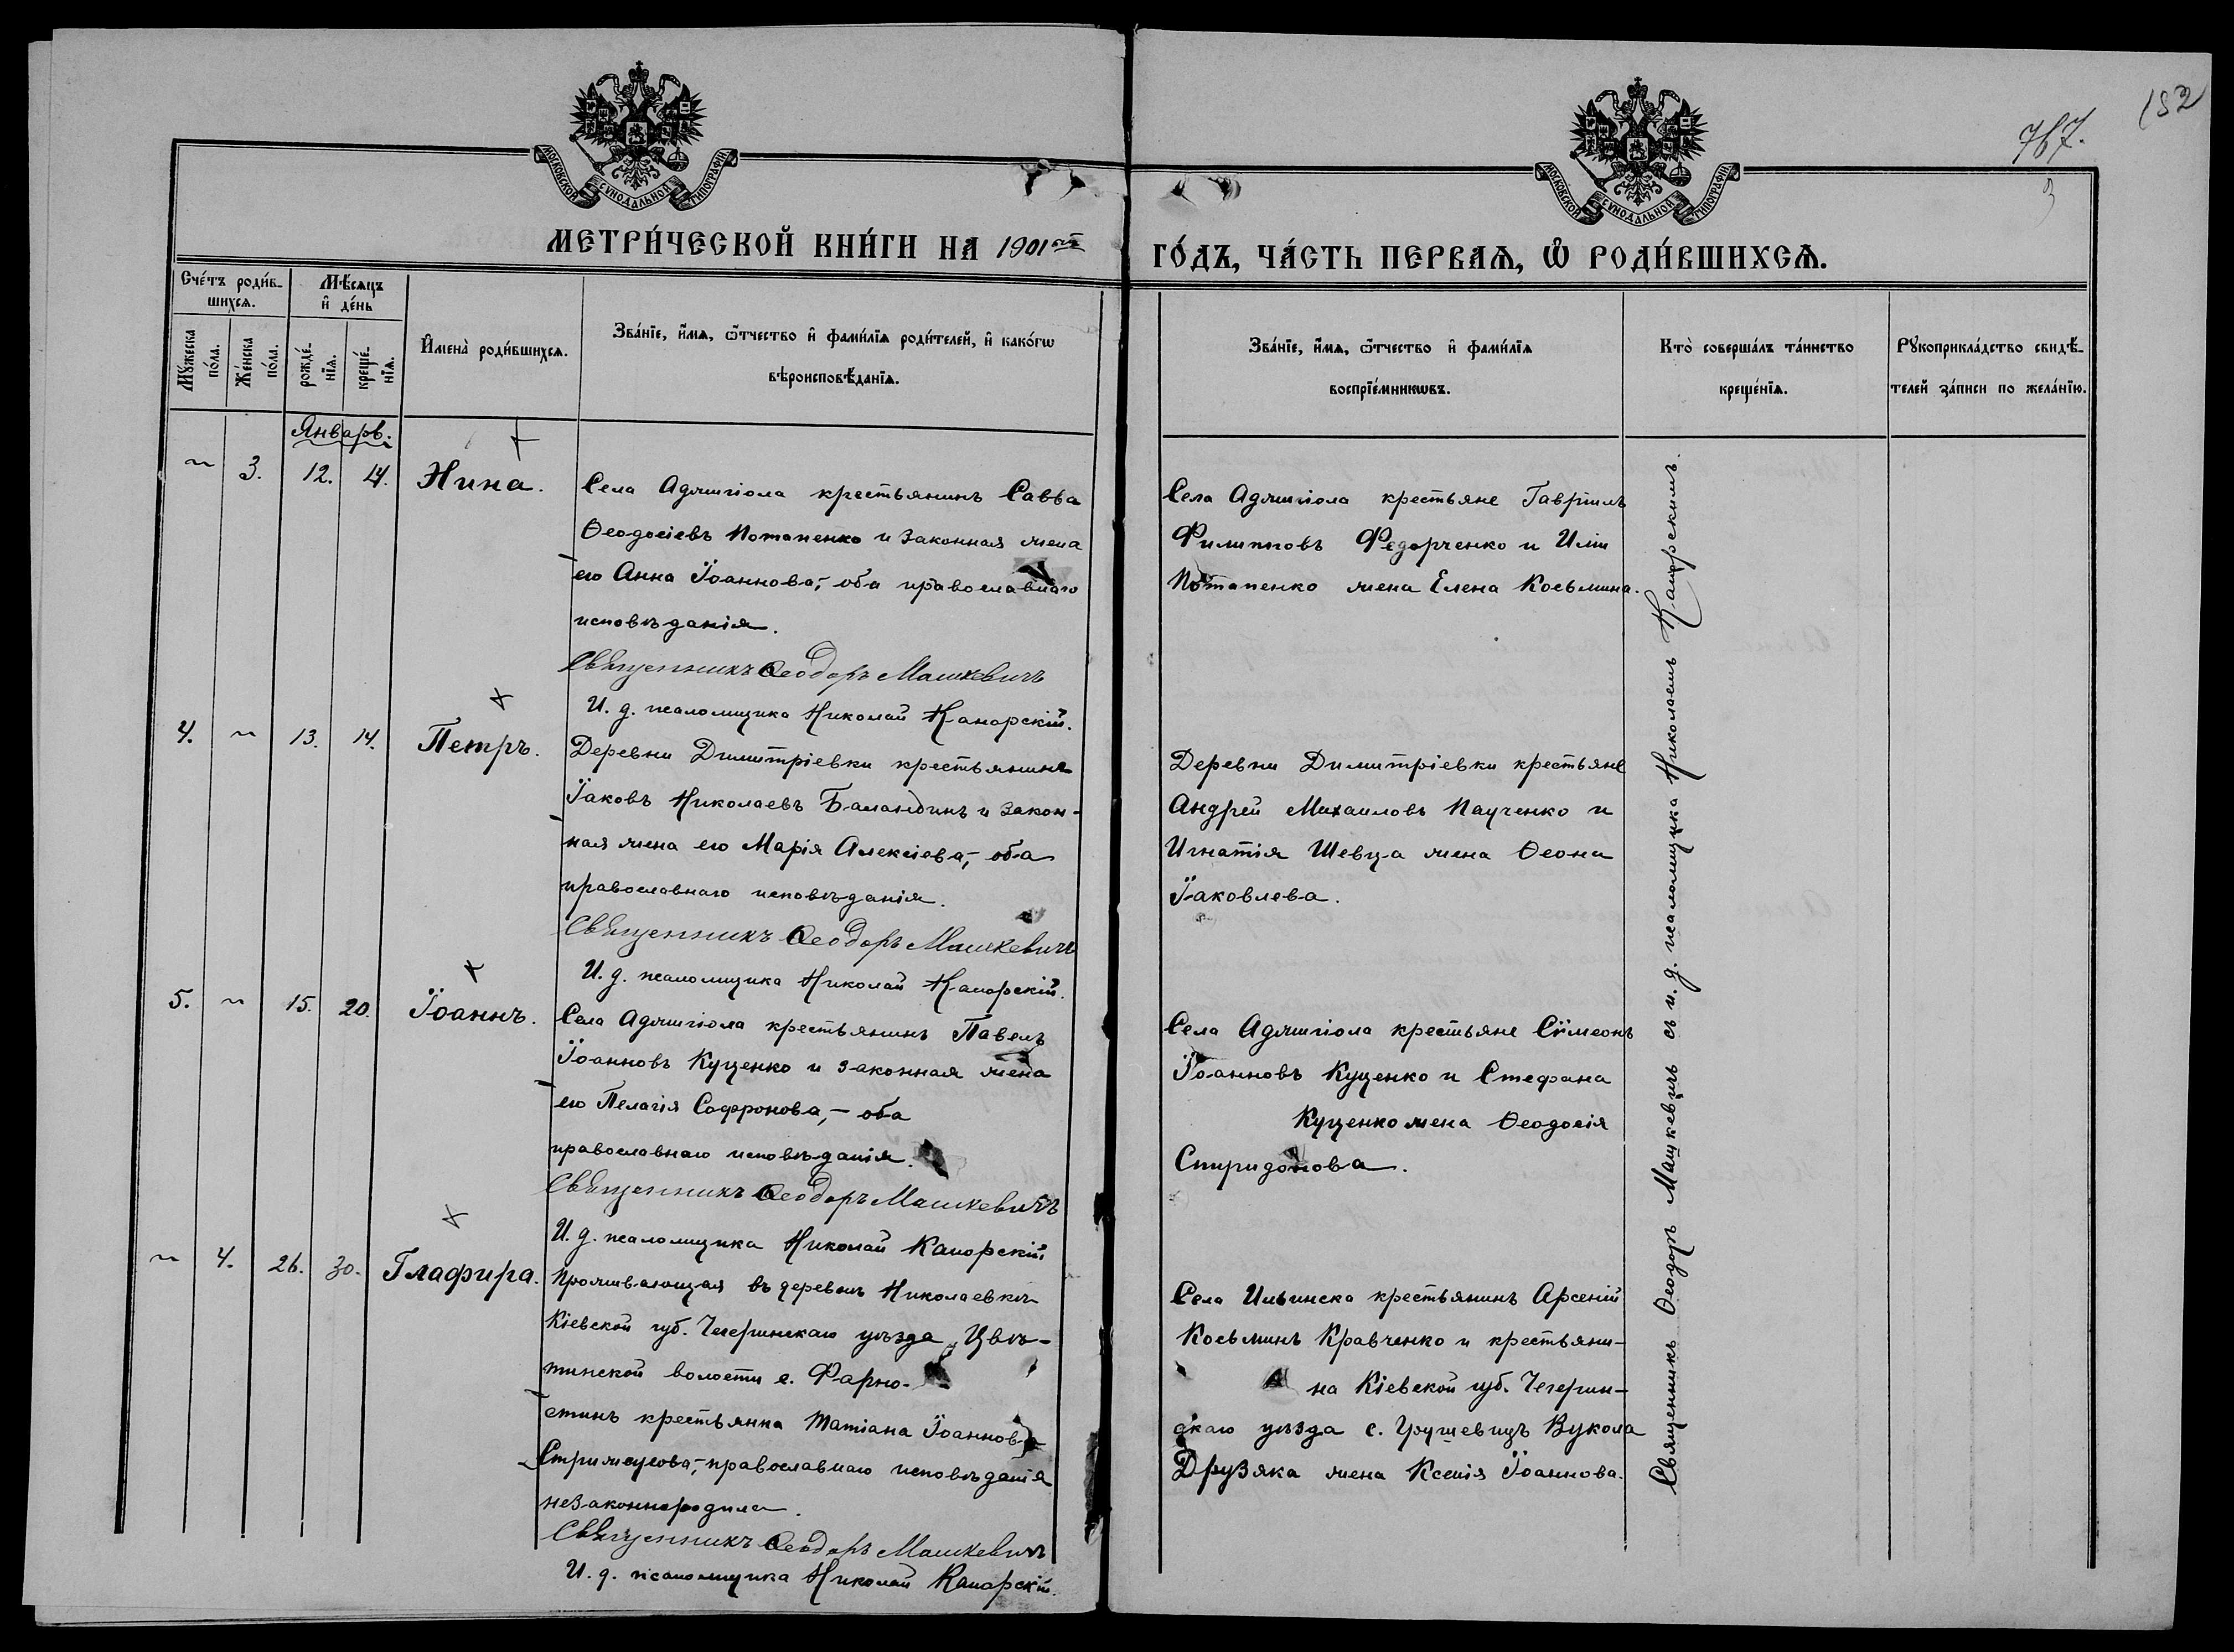 182
767.
МОСКОВСКОЙ СѴНОДАЛЬНОЙ ТИПОГРАФІИ
МОСКОВСКОЙ СѴНОДАЛЬНОЙ ТИПОГРАФІИ
МЕТРИ́ЧЕСКОЙ КНИ́ГИ НА 1901 ГО́ДЪ, ЧА́СТЬ ПЕРВАѦ, Ѡ҆ РОДИ́ВШИХСѦ.
Сче́тъ роди́в-
шихсѧ.
Мѣ́сѧцъ
и҆ де́нь
Мꙋ́жеска
по́ла.
Же́нска
по́ла.
рожде́-
нїѧ.
креще́-
нїѧ.
И҆мена̀ роди́вшихсѧ.
Зва́нїе, и҆́мѧ, ѻ҆́тчество и҆ фами́лїѧ роди́телей, и҆ како́гѡ
вѣроисповѣ́данїѧ.
Зва́нїе, и҆́мѧ, ѻ҆́тчество и҆ фами́лїѧ
воспрїе́мникѡвъ.
Кто̀ соверша́лъ та́инство
креще́нїѧ.
Рꙋкоприкла́дство свидѣ́-
телей за́писи по жела́нїю.
Январь.
~ 3. 12. 14. Нина.
Села Аджигіола крестьянинъ Савва
Ѳеодосіевъ Потапенко и законная жена
его Анна Іоаннова,- оба православнаго
исповѣданія.
Священникъ Ѳеодоръ Машкевичъ
И. д. псаломщика Николай Канарскій.
Села Аджигіола крестьяне Гавріилъ
Филипповъ Федорченко и Иліи
Потапенко жена Елена Косьмина.
4. ~ 13. 14. Петръ.
Деревни Димитріевки крестьянинъ
Іаковъ Николаевъ Баландинъ и закон-
ная жена его Марія Алексіева,- оба
православнаго исповѣданія.
Священникъ Ѳеодоръ Машкевичъ
И. д. псаломщика Николай Канарскій.
Деревни Димитріевки крестьяне
Андрей Михаиловъ Паученко и
Игнатія Шевца жена Ѳеона
Іаковлева.
5. ~ 15. 20. Іоаннъ.
Села Аджигіола крестьянинъ Павелъ
Іоанновъ Куценко и законная жена
его Пелагія Софронова,- оба
православнаго исповѣданія.
Священникъ Ѳеодоръ Машкевичъ
И. д. псаломщика Николай Канарскій
Села Аджигіола крестьяне Сѵмеонъ
Іоанновъ Куценко и Стефана
Куценко жена Ѳеодосія
Спиридонова.
~ 4. 26. 30. Глафира.
Проживающая въ деревнѣ Николаевкѣ
Кіевской губ. Чегеринскаго уѣзда, Цвѣ-
тинской волости с. Фарно-
стинъ крестьянка Татіана Іоаннова
Стрижеусова,- православнаго исповѣданія
незаконнородила.
Священникъ Ѳеодоръ Машкевичъ
И. д. псаломщика Николай Канарскій.
Села Ильинска крестьянинъ Арсеній
Косьминъ Кравченко и крестьяни-
на Кіевской губ. Чегерин-
скаго уѣзда с. Грушевицъ Вукола
Друзяка жена Ксенія Іоаннова.
Священникъ Ѳеодоръ Машкевичъ съ и. д. псаломщика Николаемъ Канарскимъ.